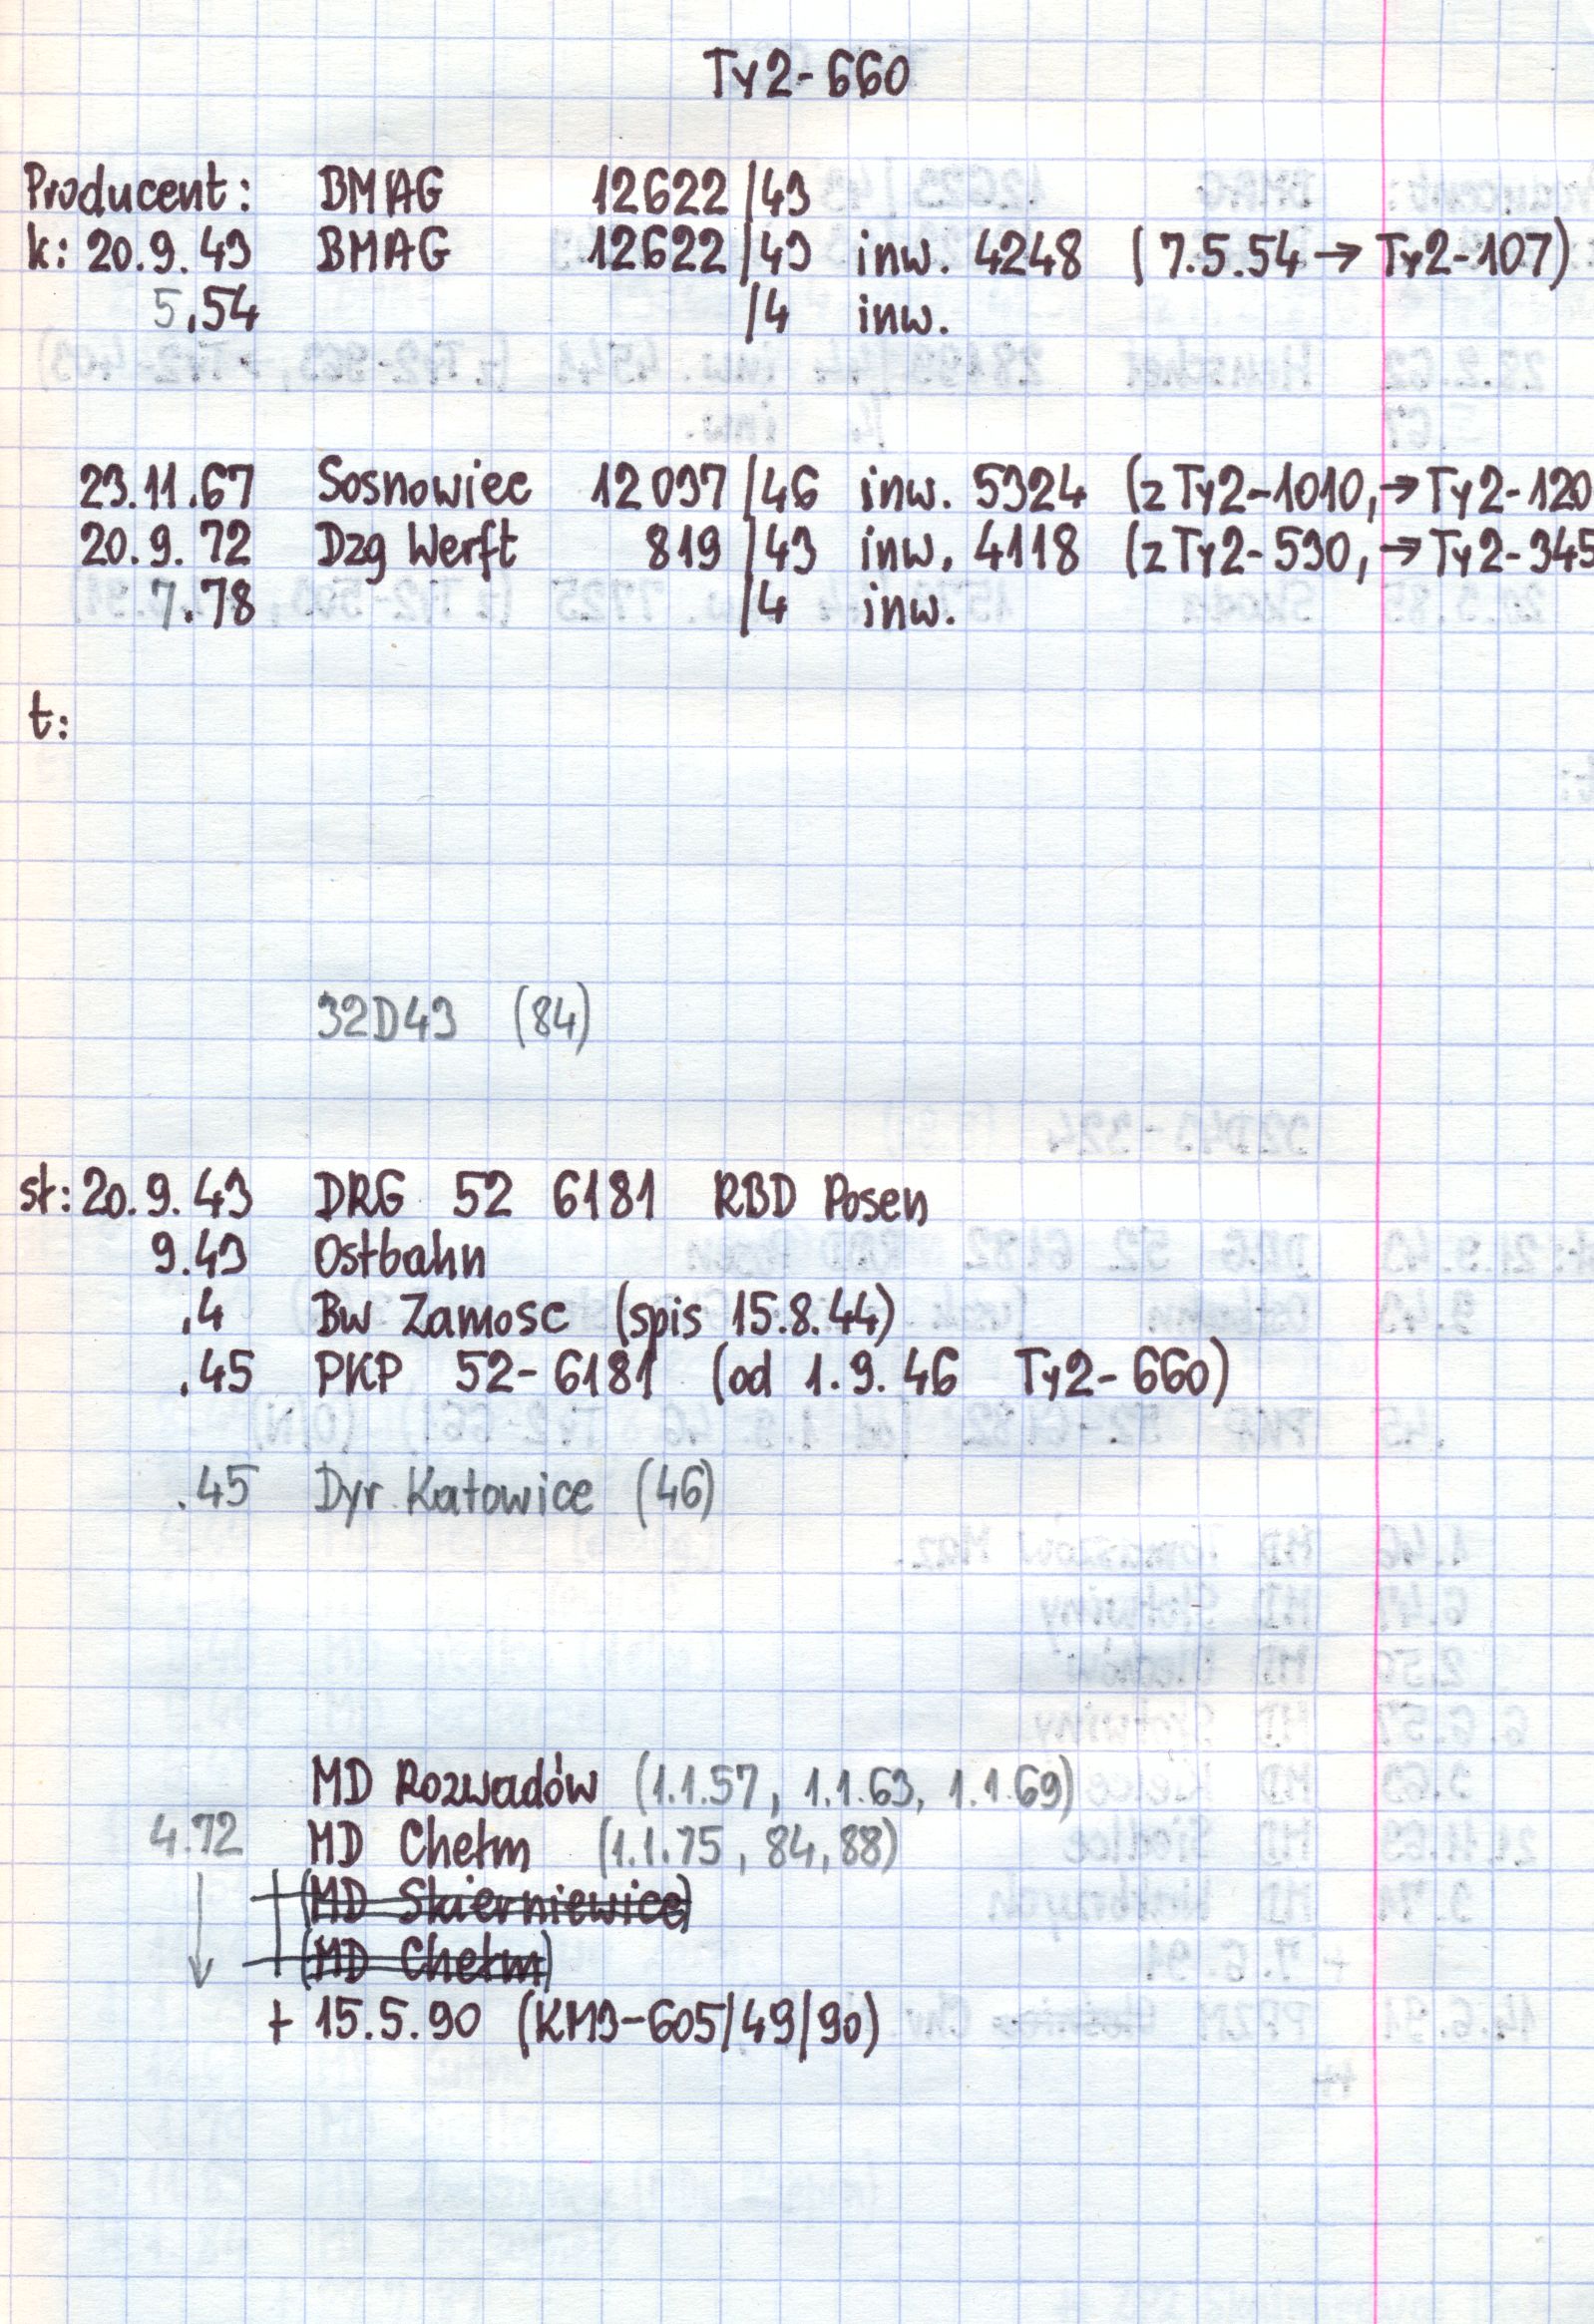 Ty2-660
Producent: BMAG 12622/43
k: 20.9.43 BMAG 12622/43 inw. 4248 (7.5.54 → Ty2-107)
5.54 /4 inw.
23.11.67 Sosnowiec 12037/46 inw. 5324 (z Ty2-1010, → Ty2-120
20.9.72 Dzg Werft 819/43 inw. 4118 (z Ty2-530, → Ty2-345
7.78 /4 inw.
t:
32D43 (84)
st: 20.9.43 DRG 52 6181 RBD Posen
9.43 Ostbahn
.4 Bw Zamosc (spis 15.8.44)
.45 PKP 52-6181 (od 1.9.46 Ty2-660)
.45 Dyr Katowice (46)
MD Rozwadów (1.1.57, 1.1.63, 1.1.69)
4.72 MD Chełm (1.1.75, 84, 88)
(MD Skierniewice)
(MD Chełm)
+ 15.5.90 (KM3-605/49/90)